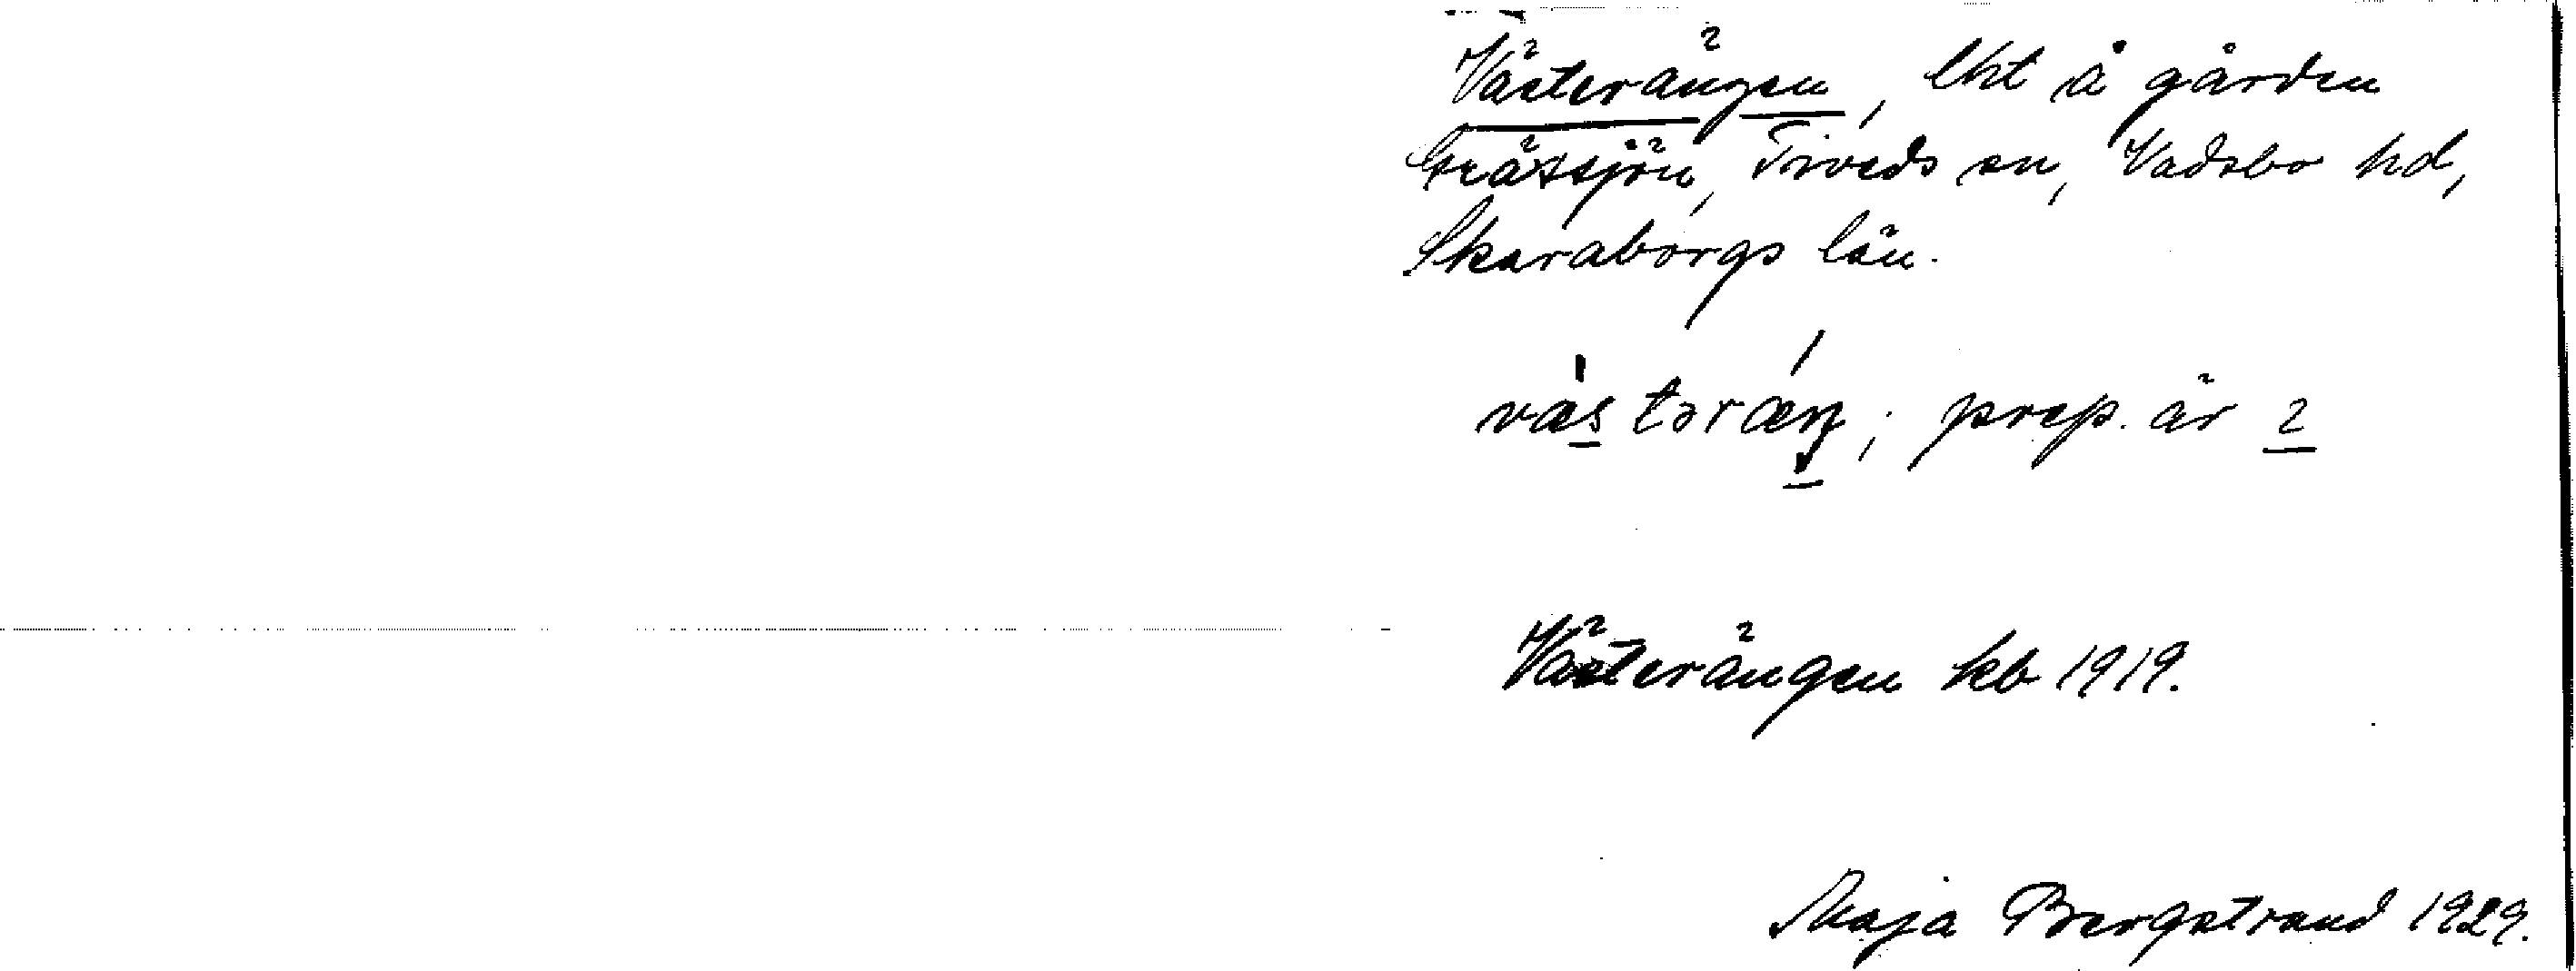 Västerängen, lht å gården
Grässjön, Tiveds sn, Vadsbo hd,
Skaraborgs län.
væstəræŋ; prep. är 2
Västerängen kb 1919.
Maja Bergstrand 1929.